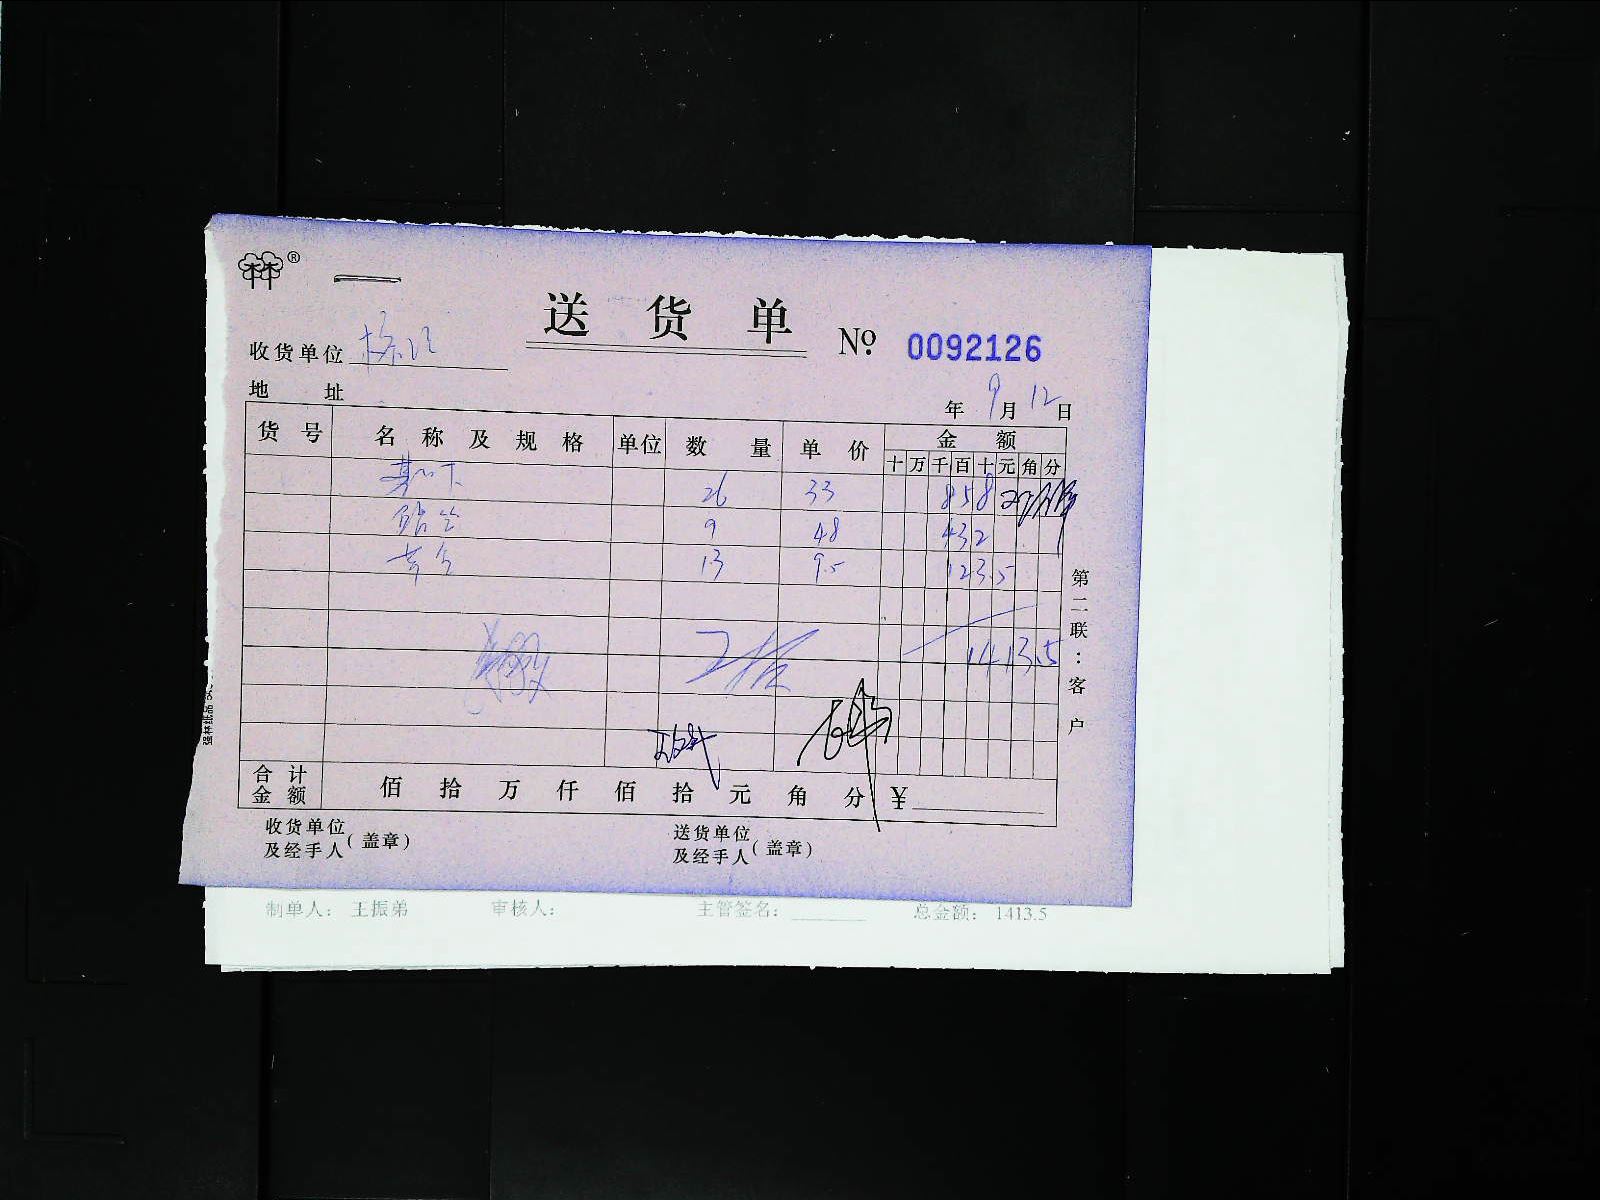 林®
送货单 № 0092126
收货单位
地址
年 9月 12日
货号 名称及规格 单位 数量 单价 金额
十万千百十元角分
26 33 858
9 48 432
13 9.5 123.5
1413.5
合计金额 佰拾万仟佰拾元角分 ¥
收货单位及经手人(盖章) 送货单位及经手人(盖章)
第二联:客户
制单人: 王振弟 审核人: 主管签名: 总金额: 1413.5